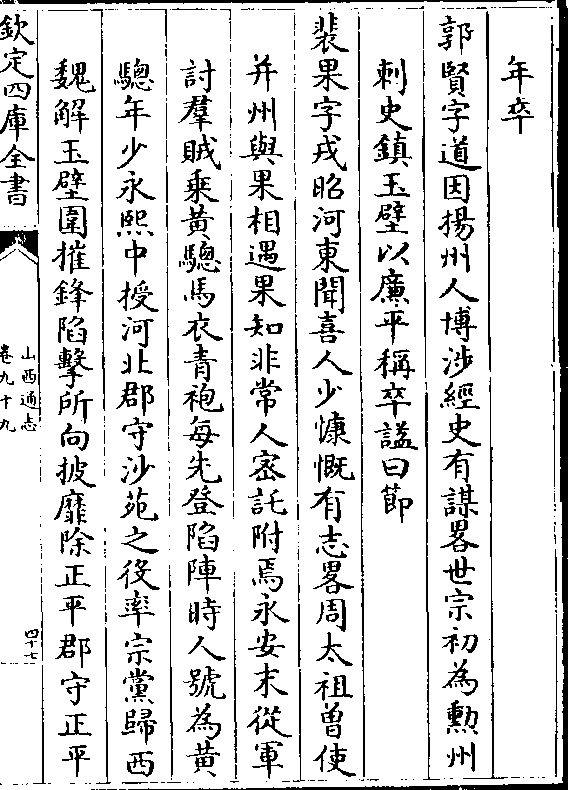 年卒
郭賢字道因揚州人博涉經史有謀畧世宗初為勲州
刺史鎮玉壁以廉平稱卒諡曰節
裴果字戎昭河東聞喜人少慷慨有志畧周太祖曽使
并州與果相遇果知非常人密託附焉永安末從軍
討羣賊乘黄驄馬衣青袍每先登陷陣時人號為黄
驄年少永熙中授河北郡守沙苑之役率宗黨歸西
魏解玉壁圍摧鋒陷擊所向披靡除正平郡守正平
欽定四庫全書
山西通志
卷九十九
四十七